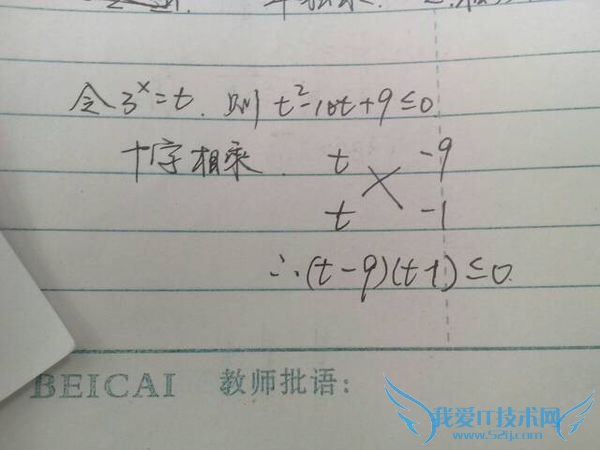 令3ˣ=t. 则 t²-10t+9≤0
十字相乘. t -9
t -1
∴(t-9)(t-1)≤0
BEICAI 教师批语:
我爱IT技术网
www.52ij.com